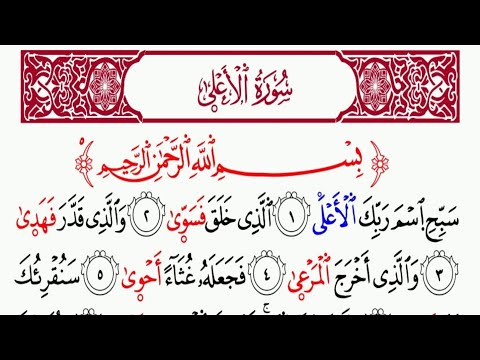 سُورَةُ ٱلْأَعْلَىٰ
بِسْمِ ٱللَّهِ ٱلرَّحْمَٰنِ ٱلرَّحِيمِ
سَبِّحِ ٱسْمَ رَبِّكَ ٱلْأَعْلَىٰ ١ ٱلَّذِى خَلَقَ فَسَوَّىٰ ٢ وَٱلَّذِى قَدَّرَ فَهَدَىٰ
٣ وَٱلَّذِىٓ أَخْرَجَ ٱلْمَرْعَىٰ ٤ فَجَعَلَهُۥ غُثَآءً أَحْوَىٰ ٥ سَنُقْرِئُكَ